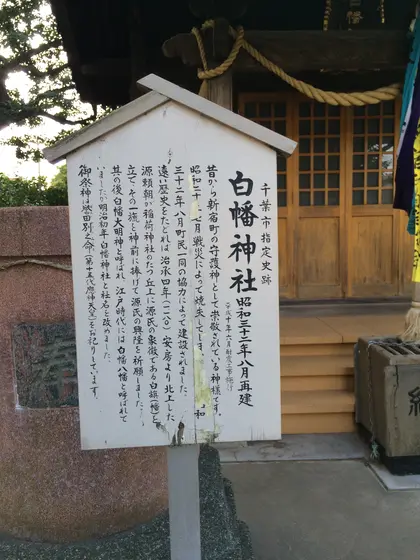 千葉市指定史跡
白幡神社
昭和三十二年八月再建
昔から新宿町の守護神として崇敬されている神様です。
昭和二十年七月戦災によって焼失してしま 昭和
三十二年八月町民一同の協力によって建設されました。
遠い歴史をたどれば治承四年(一一八〇)安房より北上した
源頼朝が稲荷神社のたつ丘上に源氏の象徴である白旗(幡)を
立て、その一旗を神前に捧げて源氏の興隆を祈願しました。
其の後白幡大明神と呼ばれ、江戸時代には白幡八幡と呼ばれて
いましたが明治初年白幡神社と社名を改めました。
御祭神は誉田別之命(第十五代應神天皇)をお祀りしています。